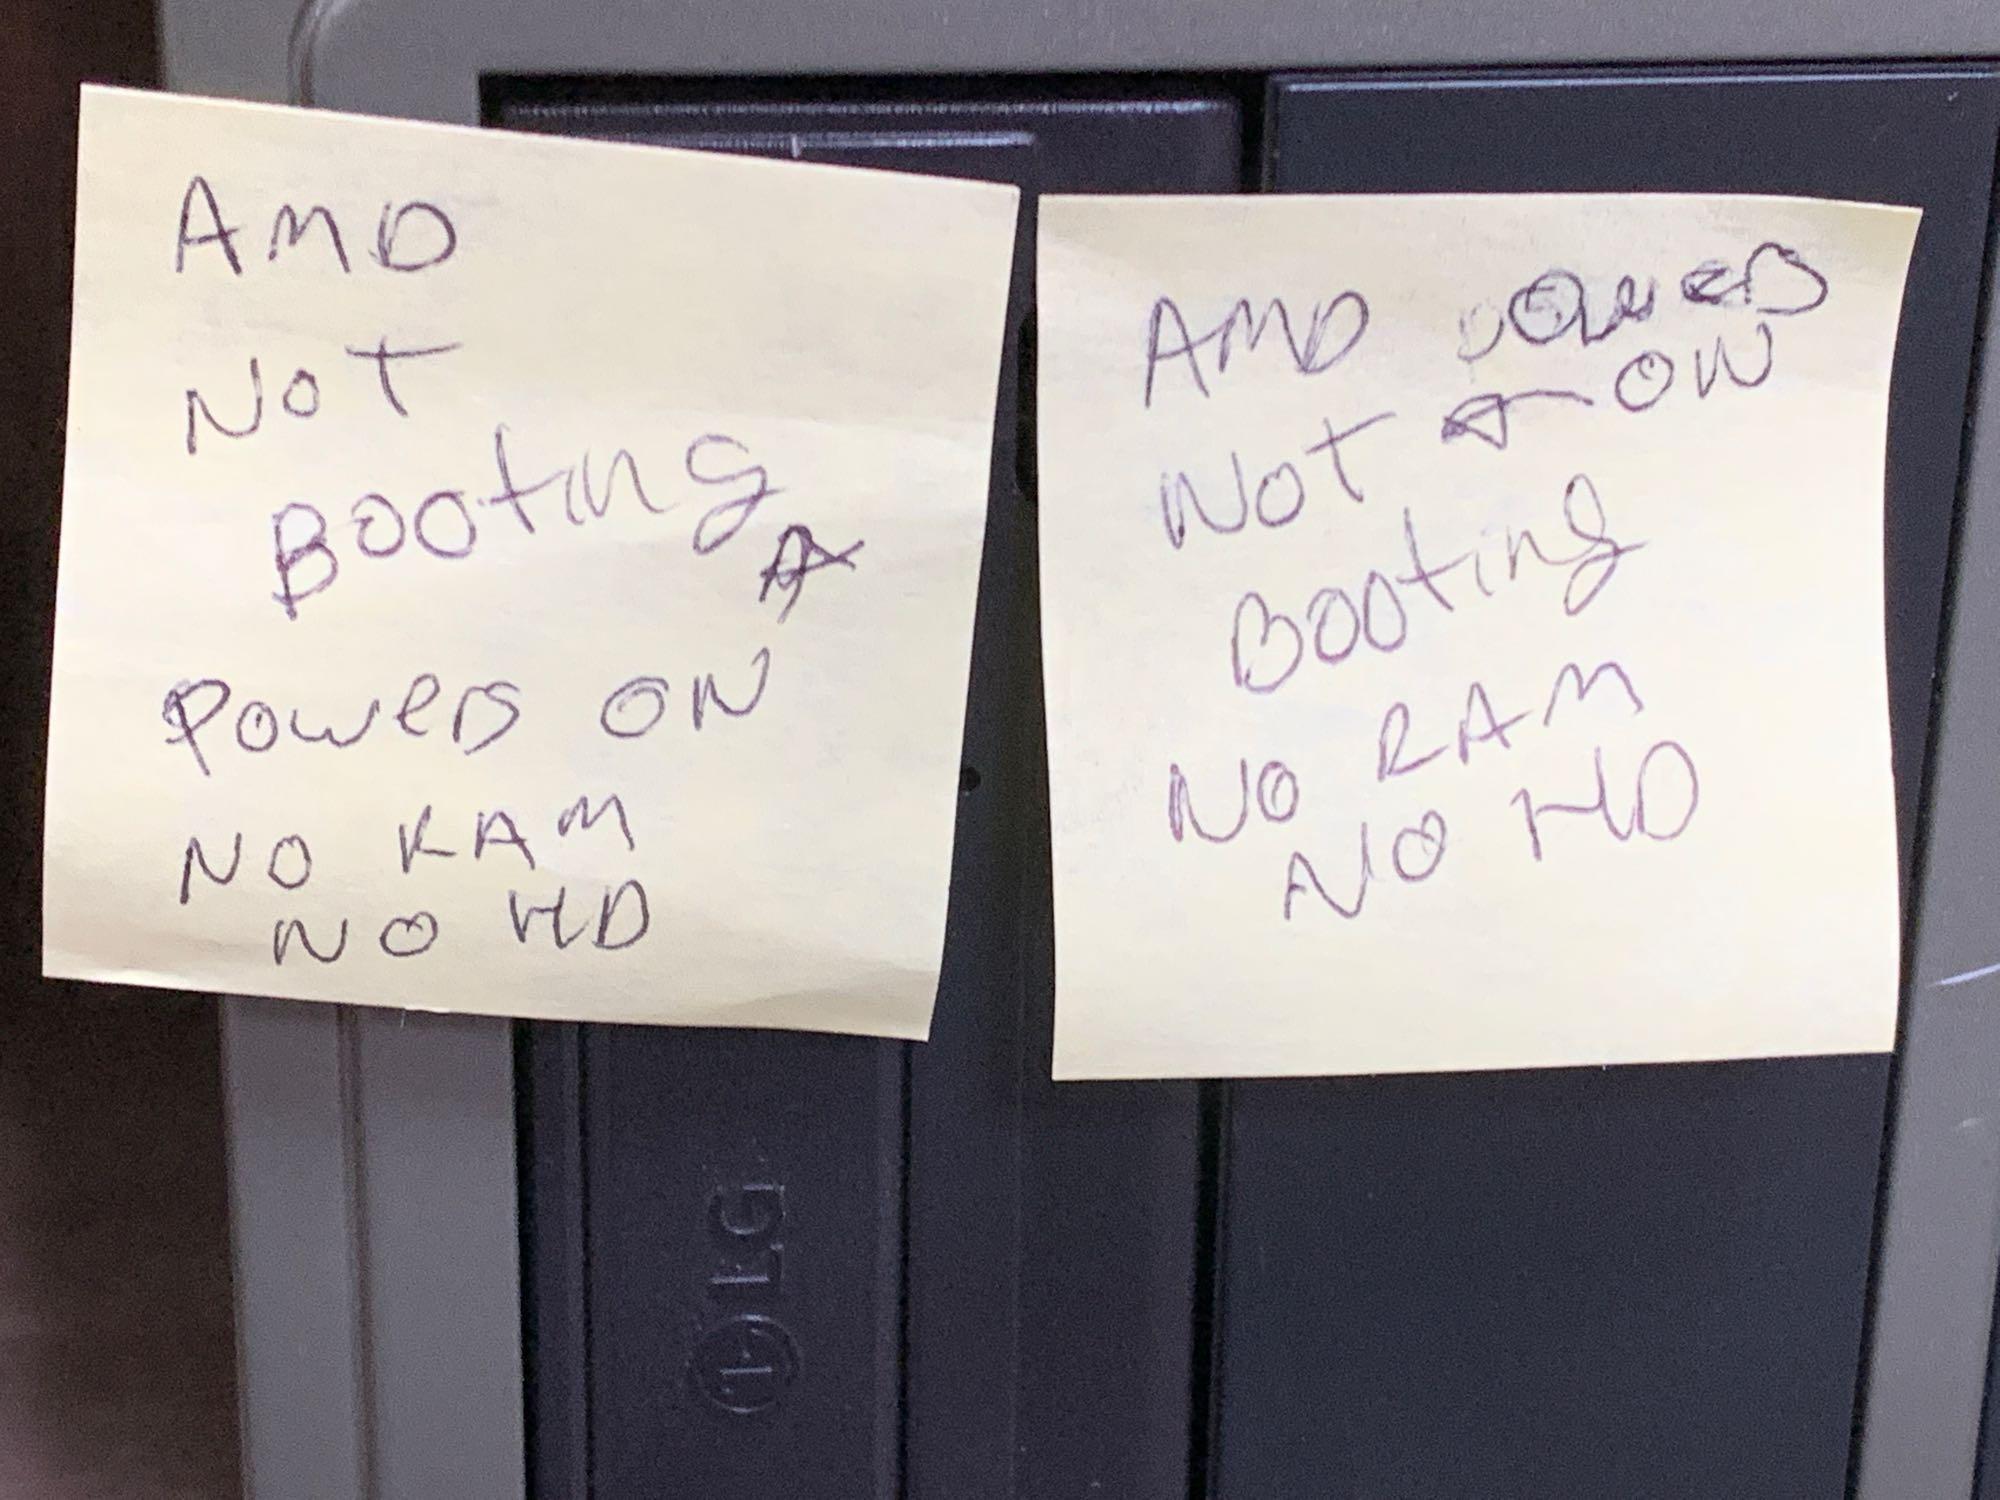 AMD
NOT
BOOting
POWERS ON
NO RAM
NO HD
AMD POWERED
NOT ON
BOOting
NO RAM
NO HD
LG